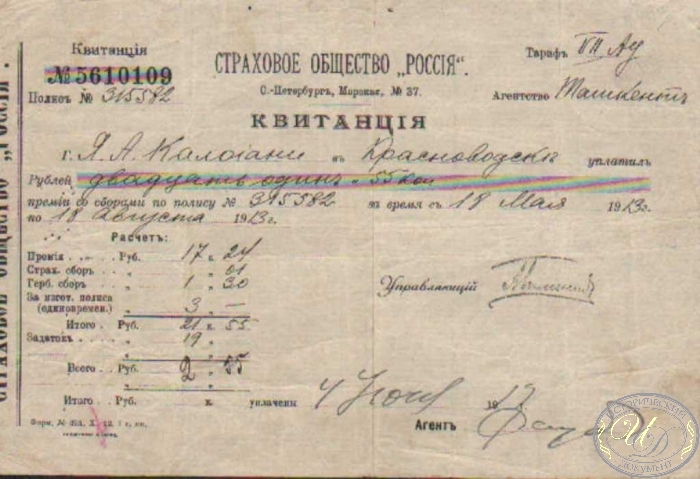 Квитанція
№ 5610109
Полисъ № 315582
СТРАХОВОЕ ОБЩЕСТВО „РОССІЯ“.
С.-Петербургъ, Морская, № 37.
Тарифъ
Агентство Ташкентъ
КВИТАНЦІЯ
Г. Я. А. Калогани въ Красноводскъ уплатилъ
Рублей двадцать одинъ 55 коп
преміи со сборами по полису № 315582 за время съ 18 Мая 1913 г.
по 18 Августа 1913 г.
Расчетъ:
Премія Руб. 17 к. 24
Страх. сборъ „ „ 01
Герб. сборъ „ 1 „ 30
За изгот. полиса
(единовремен.) „ 3 „ —
Итого Руб. 21 к. 55
Задатокъ „ 19 „
Всего Руб. 2 „ 55
Итого Руб. к. уплачены 4 1913
Управляющій
Агентъ
СТРАХОВОЕ ОБЩЕСТВО „РОССІЯ“.
ИСТОРИЧЕСКИЙ
ИД
ДОКУМЕНТ